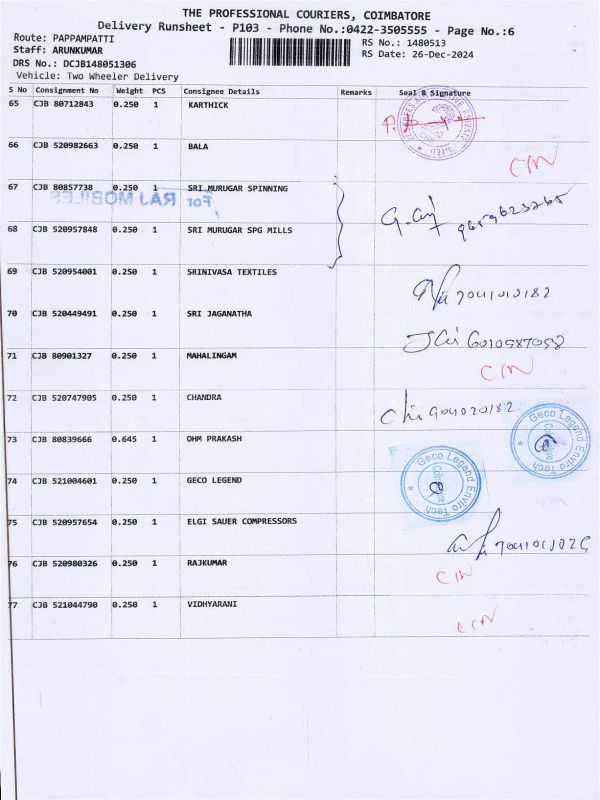 THE PROFESSIONAL COURIERS, COIMBATORE
Delivery Runsheet - P103 - Phone No.:0422-3505555 - Page No.:6
Route: PAPPAMPATTI RS No.: 1480513
Staff: ARUNKUMAR RS Date: 26-Dec-2024
DRS No.: DCJB148051306
Vehicle: Two Wheeler Delivery
S No Consignment No Weight PCS Consignee Details Remarks Seal & Signature
65 CJB 80712843 0.250 1 KARTHICK
66 CJB 520982663 0.250 1 BALA
67 CJB 80857738 0.250 1 SRI MURUGAR SPINNING
For RAJ MOBILES
68 CJB 520957848 0.250 1 SRI MURUGAR SPG MILLS
69 CJB 520954001 0.250 1 SRINIVASA TEXTILES
70 CJB 520449491 0.250 1 SRI JAGANATHA
71 CJB 80901327 0.250 1 MAHALINGAM
72 CJB 520747905 0.250 1 CHANDRA
73 CJB 80839666 0.645 1 OHM PRAKASH
Geco Legend Enviro Tech
74 CJB 521004601 0.250 1 GECO LEGEND
Geco Legend Enviro Tech
75 CJB 520957654 0.250 1 ELGI SAUER COMPRESSORS
76 CJB 520980326 0.250 1 RAJKUMAR
77 CJB 521044790 0.250 1 VIDHYARANI